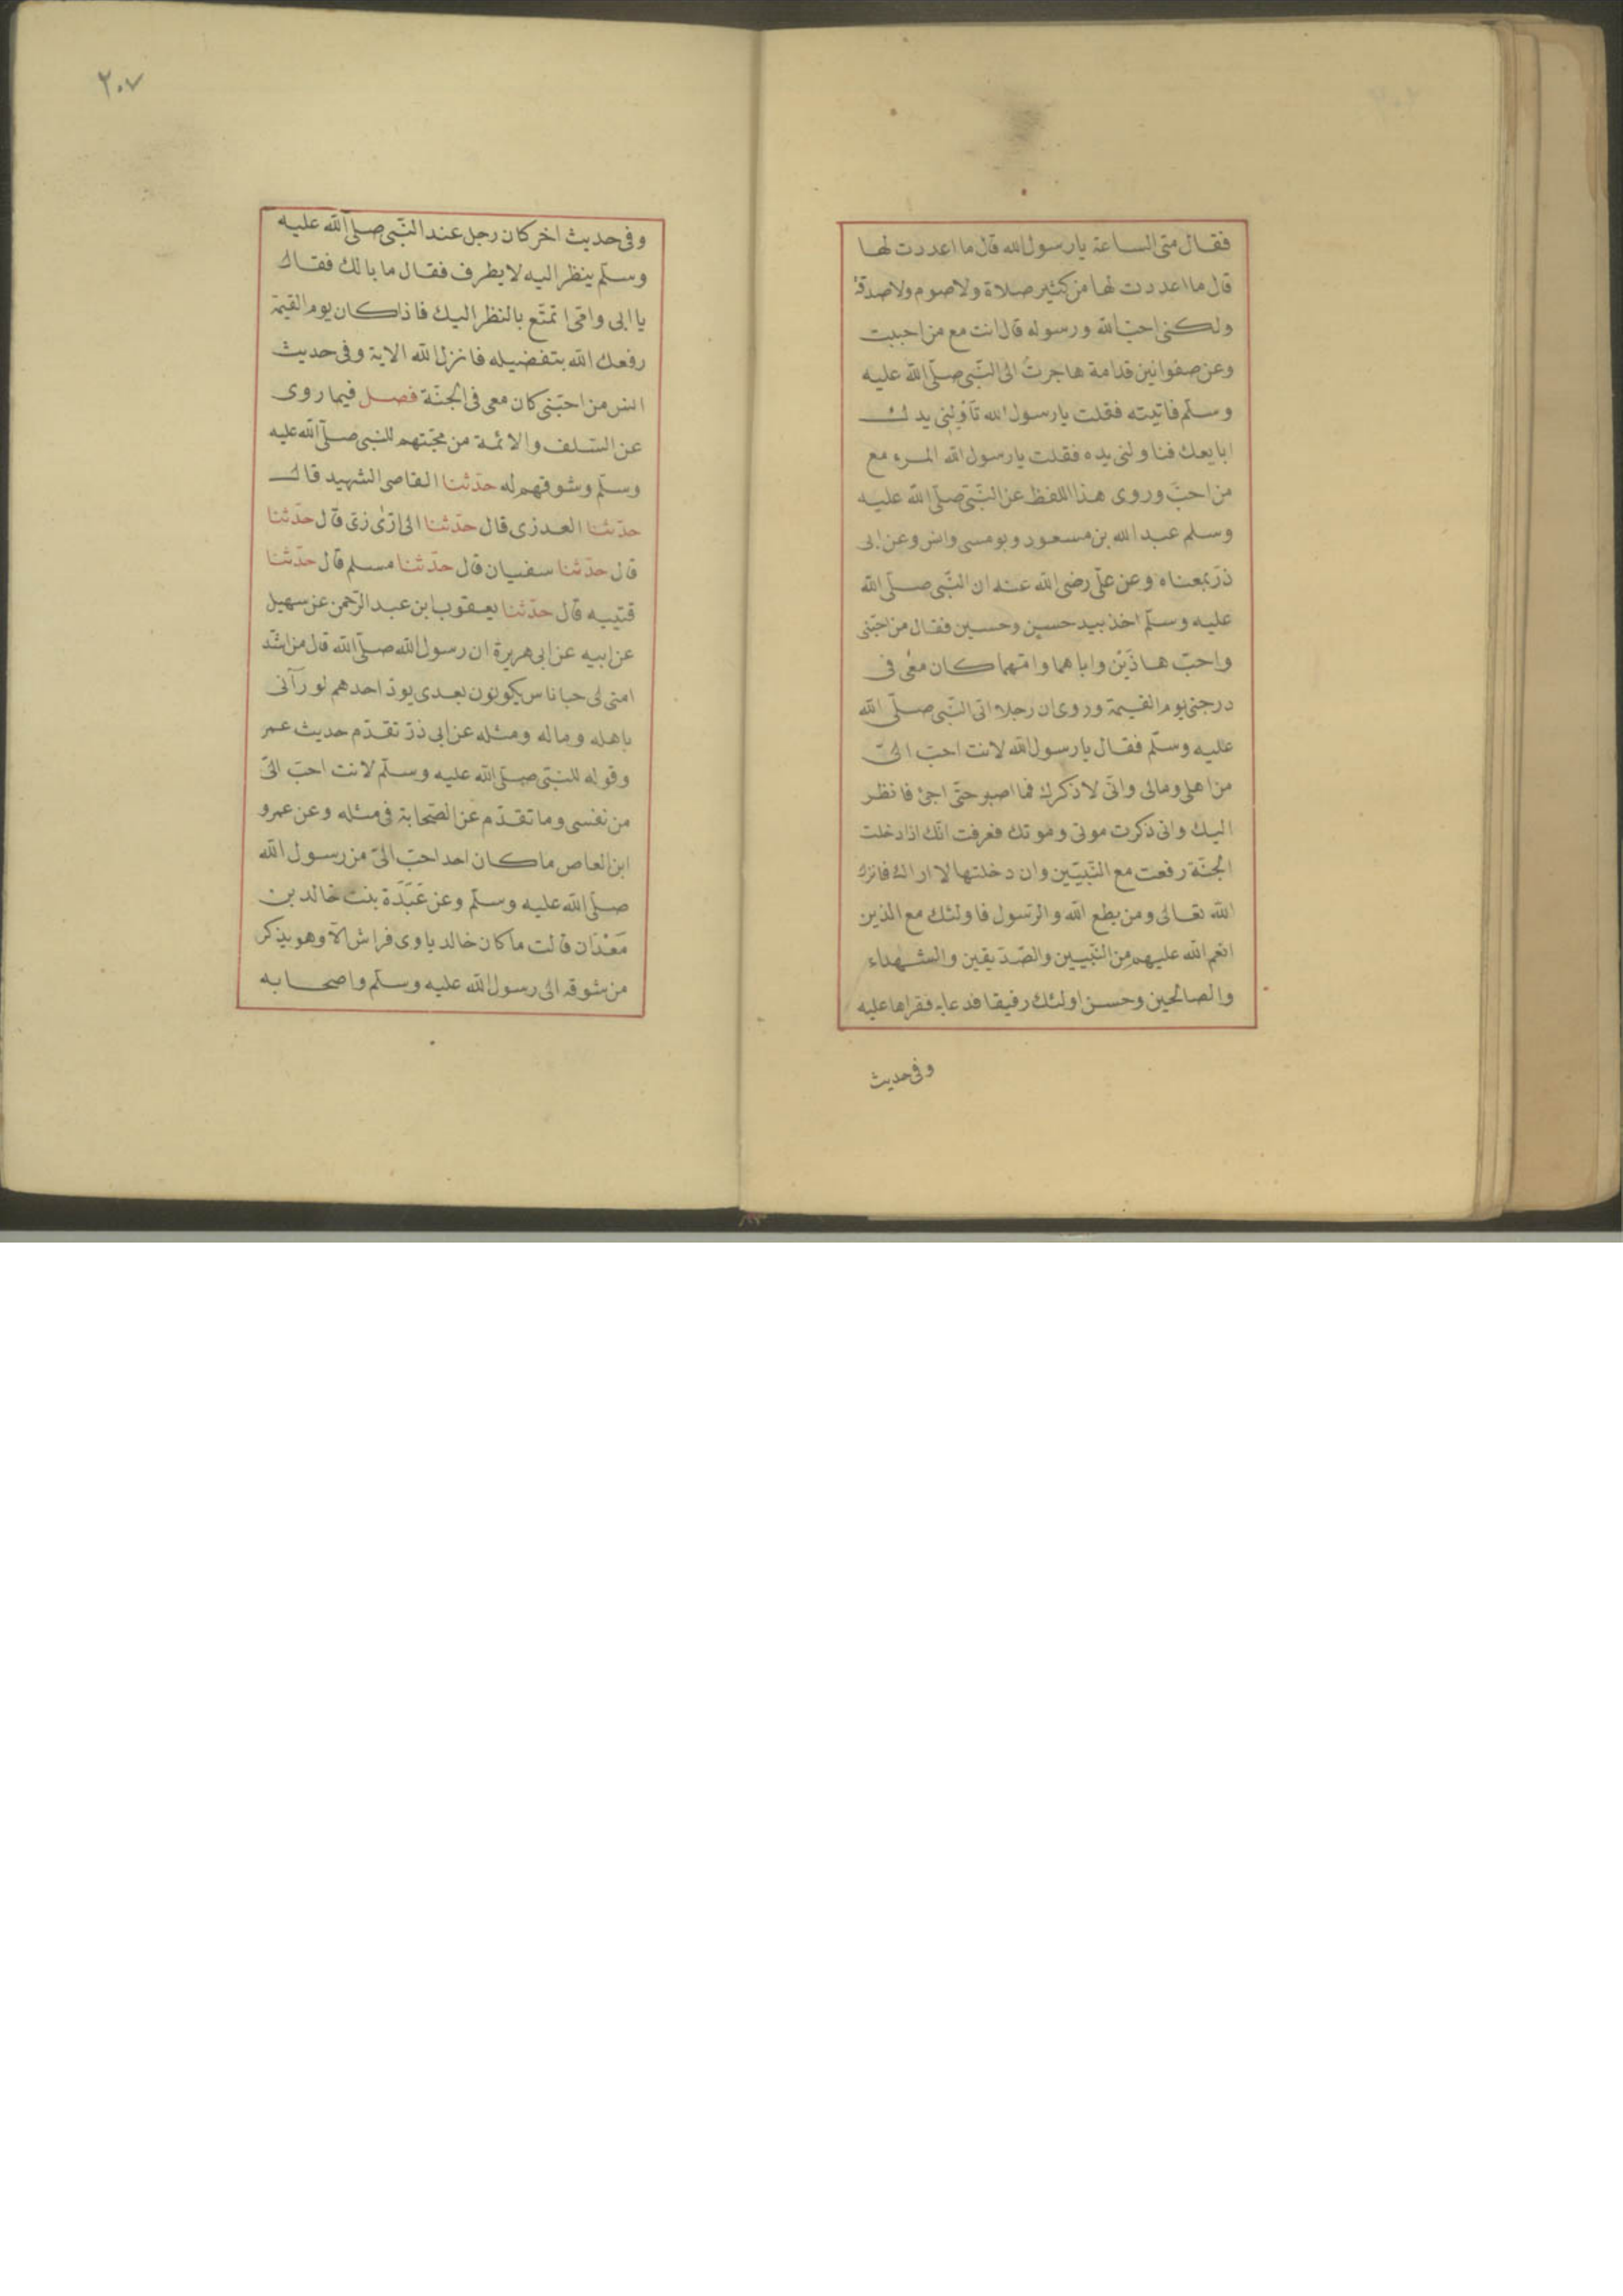 فقال متى الساعة يا رسول الله قال ما اعددت لها
قال ما اعددت لها من كثير صلاة ولا صوم ولا صدقة
ولكنى احبّ الله ورسوله قال انت مع من احببت
وعن صفوا نبن قدامة هاجرتُ الى النّبى صلّى الله عليه
وسلّم فاتيته فقلت يا رسول الله ناولنى يدك
ابايعك فناولنى يده فقلت يا رسول الله المرء مع
من احبّ وروى هذا اللفظ عن النّبى صلّى الله عليه
وسلم عبد الله بن مسعود وبو مسى وانس وعن ابى
ذرّ بمعناه وعن علىّ رضى الله عنه ان النّبى صلّى الله
عليه وسلّم اخذ بيد حسين وحسين فقال من احبّنى
واحبّ هاذَيْن واباهما وامّهما كان معى فى
درجتى يوم القيمة وروى ان رجلا اتى النّبى صلّى الله
عليه وسلّم فقال يا رسول الله لانت احبّ الىّ
من اهلى ومالى وانّى لاذكرك فما اصبر حتّى اجئ فانظر
اليك وانى ذكرت موتى وموتك فعرفت انّك اذا دخلت
الجنّة رفعت مع النّبيّين وان دخلتها لا اراك فانزل
الله تعالى ومن يطع الله والرّسول فاولئك مع الذين
انعم الله عليهم من النّبيين والصّدّيقين والشهداء
والصالحين وحسن اولئك رفيقا فدعا به فقراها عليه
وفى حديث
٢٠٧
وفى حديث اخر كان رجل عند النّبى صلّى الله عليه
وسلّم ينظر اليه لا يطرف فقال ما بالك فقال
يا ابى وامّى اتمتّع بالنظر اليك فاذا كان يوم القيمة
رفعك الله بتفضيله فانزل الله الاية وفى حديث
انس من احبّنى كان معى فى الجنّة فصل فيما روى
عن السّلف والائمة من محبّتهم للنّبى صلّى الله عليه
وسلّم وشوقهم له حدّثنا القاضى الشهيد قال
حدّثنا العدرى قال حدّثنا الرّازى قال حدّثنا
قال حدّثنا سفيان قال حدّثنا مسلم قال حدّثنا
قتيبه قال حدّثنا يعقوب ابن عبد الرّحمن عن سهيل
عن ابيه عن ابى هريرة ان رسول الله صلّى الله قال من اشّد
امتى لى حبا ناس يكونون بعدى يودّ احدهم لو رآنى
باهله وماله ومثله عن ابى ذرّ تقدّم حديث عمر
وقوله للنّبى صلّى الله عليه وسلّم لانت احبّ الىّ
من نفسى وما تقدّم عن الصّحابة فى مثله وعن عمرو
ابن العاص ما كان احد احبّ الىّ من رسول الله
صلّى الله عليه وسلّم وعن عَبْدَة بنت خالد بن
مَعْدَان قالت ما كان خالد ياوى فراش الّا وهو يذكر
من شوقه الى رسول الله عليه وسلّم واصحابه